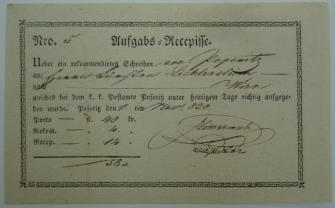 Nro. 5 Aufgabs-Recepisse.
Ueber ein rekommendirtes Schreiben von Poseritz
an Herrn
nach Wien
welches bei dem k. k. Postamte Poseritz unter heutigem Tage richtig aufgege-
ben wurde. Poseritz den ten Nov. 820.
Porto — fl. 40 kr.
Rekom. — „ 4. „
Recep. — „ 14. „
/ 58.